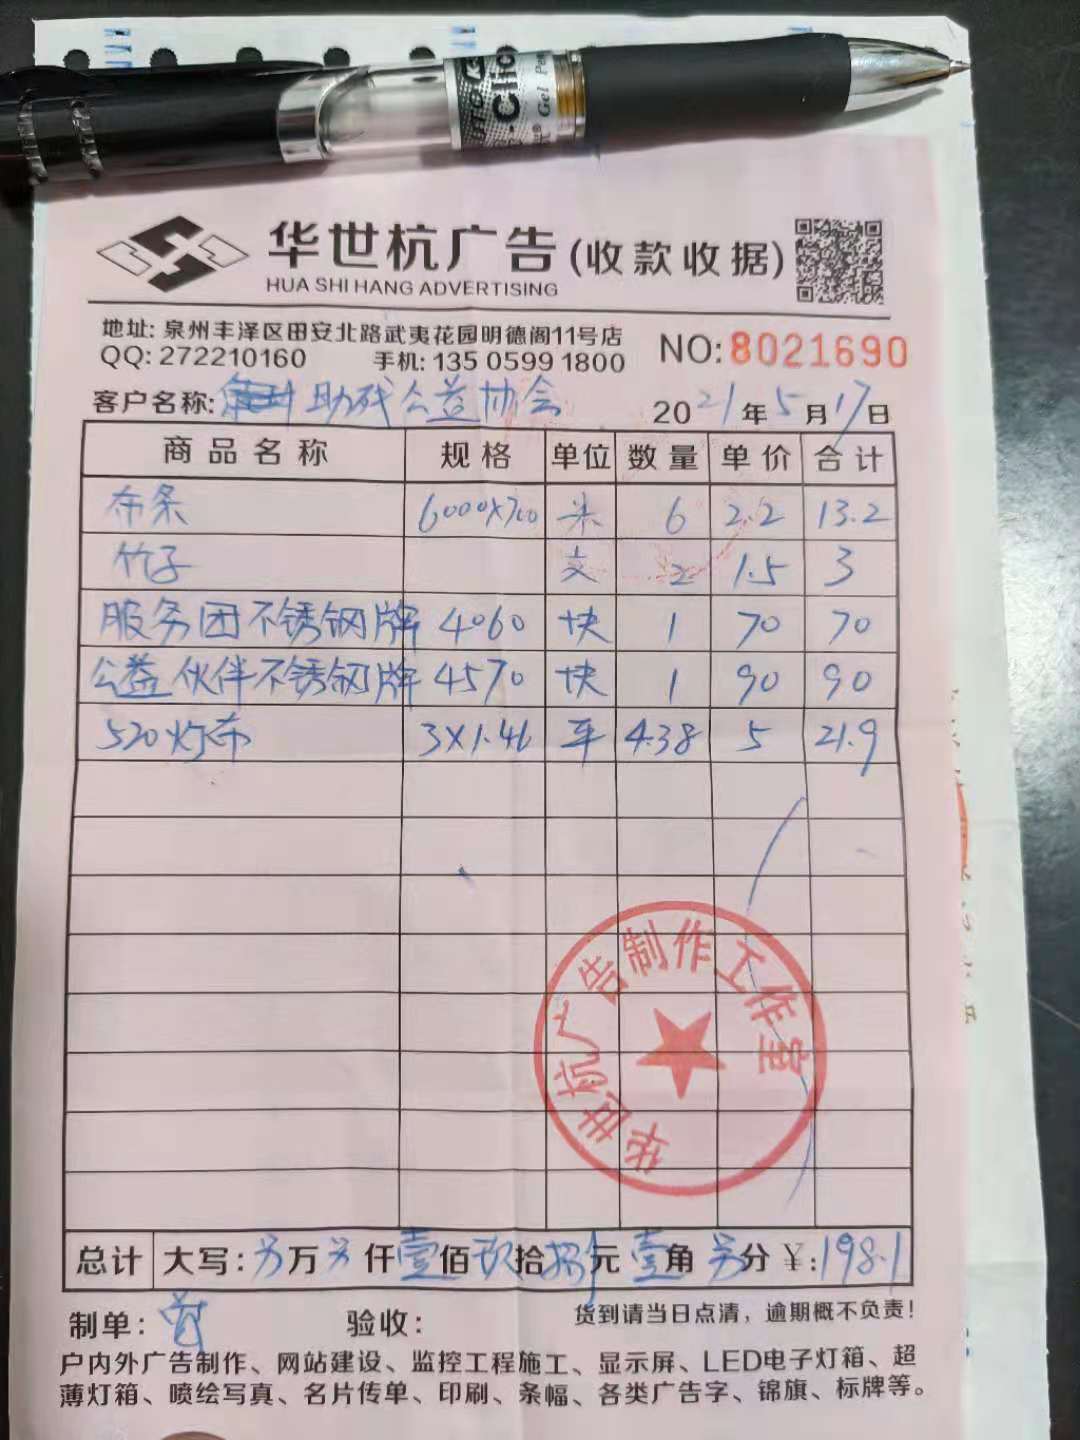 华世杭广告(收款收据)
HUA SHI HANG ADVERTISING
地址: 泉州丰泽区田安北路武夷花园明德阁11号店
QQ: 272210160 手机: 135 0599 1800 NO: 8021690
客户名称: 助残公益协会 2021年5月17日
商品名称 规格 单位 数量 单价 合计
布条 6000×700 米 6 2.2 13.2
竹子 支 2 1.5 3
服务团不锈钢牌 4060 块 1 70 70
公益伙伴不锈钢牌 4570 块 1 90 90
520灯布 3×1.46 平 4.38 5 21.9
华世杭广告制作工作室
总计 大写: 万 仟壹佰玖拾捌元壹角 分 ¥:198.1
制单: 验收: 货到请当日点清，逾期概不负责!
户内外广告制作、网站建设、监控工程施工、显示屏、LED电子灯箱、超
薄灯箱、喷绘写真、名片传单、印刷、条幅、各类广告字、锦旗、标牌等。
Gel Pen